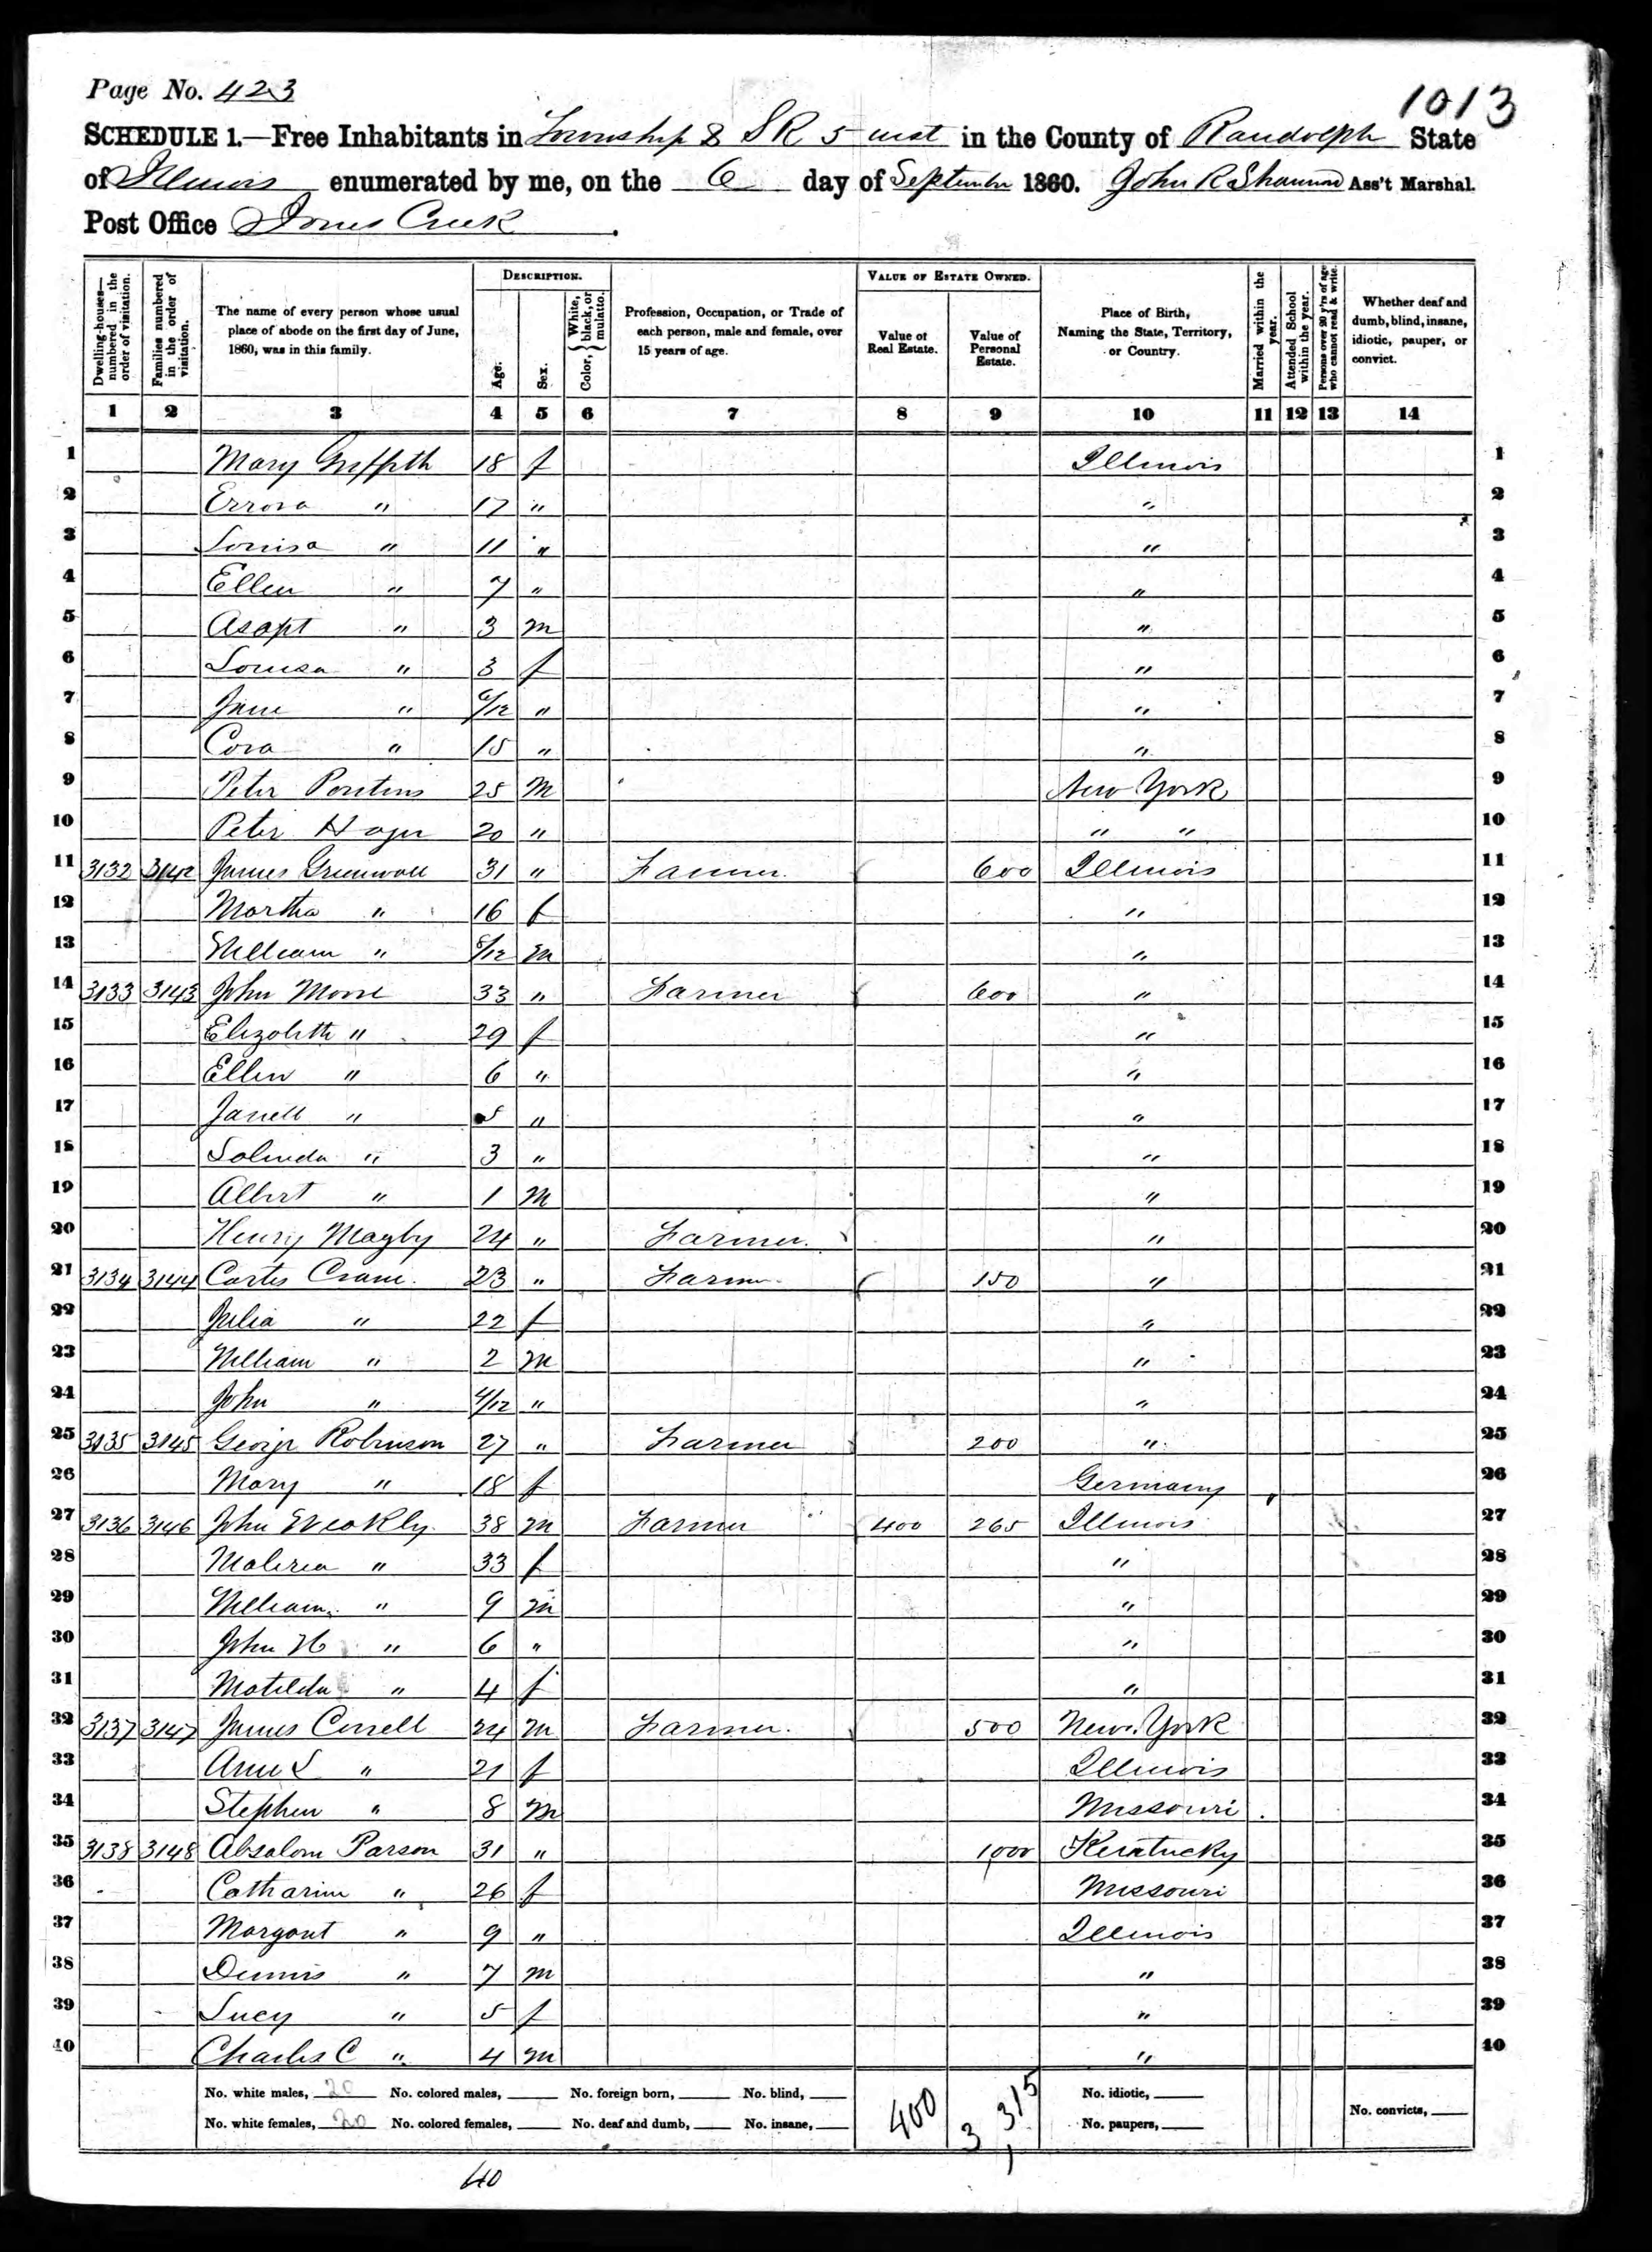 Page No. 423
1013
SCHEDULE 1.—Free Inhabitants in Township 8 S R 5 west in the County of Randolph State
of Illinois enumerated by me, on the 6 day of September 1860. John R Shannon Ass't Marshal.
Post Office Jones Creek.
Dwelling-houses—numbered in the order of visitation.
Families numbered in the order of visitation.
The name of every person whose usual place of abode on the first day of June, 1860, was in this family.
DESCRIPTION.
Age.
Sex.
Color, {White, black, or mulatto.
Profession, Occupation, or Trade of each person, male and female, over 15 years of age.
VALUE OF ESTATE OWNED.
Value of Real Estate.
Value of Personal Estate.
Place of Birth, Naming the State, Territory, or Country.
Married within the year.
Attended School within the year.
Persons over 20 y'rs of age who cannot read & write.
Whether deaf and dumb, blind, insane, idiotic, pauper, or convict.
1 2 3 4 5 6 7 8 9 10 11 12 13 14
1 Mary Griffith 18 f Illinois 1
2 Errora " 17 " " 2
3 Louisa " 11 " " 3
4 Ellen " 7 " " 4
5 Asapt " 3 m " 5
6 Louisa " 3 f " 6
7 Jane " 6/12 " " 7
8 Cora " 15 " " 8
9 Peter 25 M New York 9
10 Peter Hager 20 " " " 10
11 3132 3142 James Greenwall 31 " Farmer 600 Illinois 11
12 Martha " 16 f " 12
13 William " 8/12 m " 13
14 3133 3143 John Moore 33 " Farmer 600 " 14
15 Elizabeth " 29 f " 15
16 Ellen " 6 " " 16
17 " 5 " " 17
18 " 3 " " 18
19 Albert " 1 M " 19
20 Henry Mayby 24 " Farmer. " 20
21 3134 3144 Crane. 23 " Farmer 150 " 21
22 Julia " 22 f " 22
23 William " 2 m " 23
24 John " 4/12 " " 24
25 3135 3145 George Robinson 27 " Farmer 200 " 25
26 Mary " 18 f Germany 26
27 3136 3146 John Weakly 38 m Farmer 400 265 Illinois 27
28 " 33 f " 28
29 William " 9 m " 29
30 John H " 6 " " 30
31 Matilda " 4 f " 31
32 3137 3147 James 24 m Farmer. 500 New York 32
33 Ann L " 21 f Illinois 33
34 Stephen " 8 M Missouri 34
35 3138 3148 Absalom Parson 31 " 1000 Kentucky 35
36 Catharine " 26 f Missouri 36
37 Margaret " 9 " Illinois 37
38 Dennis " 7 m " 38
39 Lucy " 5 f " 39
40 Charles C " 4 m " 40
No. white males, 20 No. colored males, No. foreign born, No. blind, 400 3,315 No. idiotic,
No. white females, 20 No. colored females, No. deaf and dumb, No. insane, No. paupers, No. convicts,
40